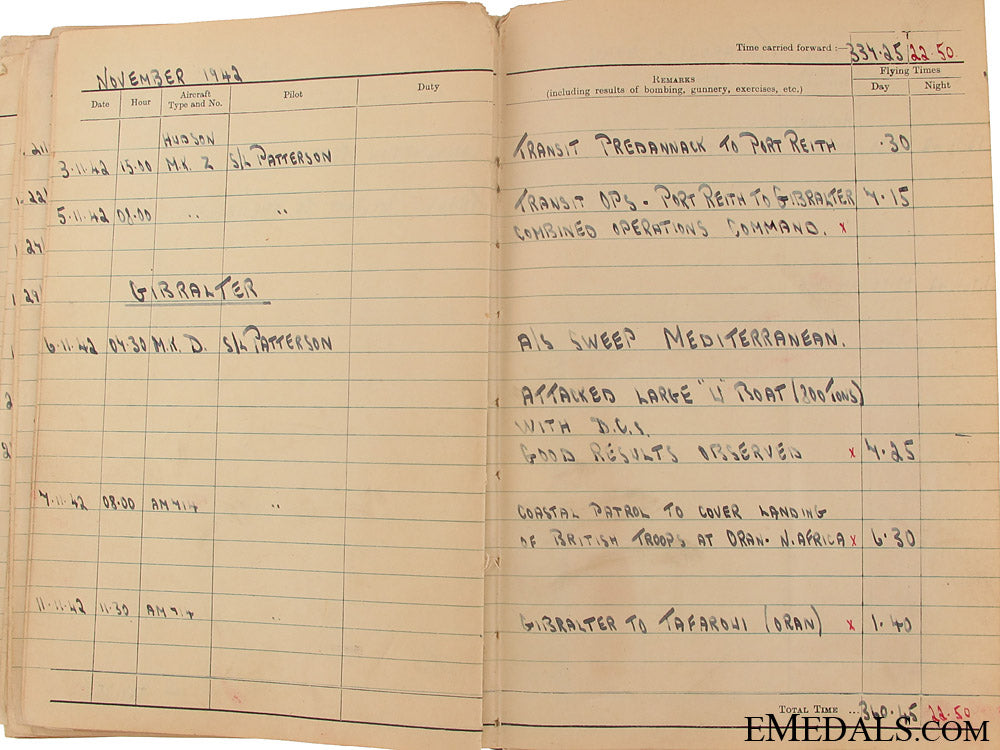 NOVEMBER 1942
Date Hour Aircraft Type and No. Pilot Duty
HUDSON
3.11.42 15.00 M.K. Z S/L PATTERSON
5.11.42 08.00 " "
GIBRALTER
6.11.42 04.30 M.K. D. S/L PATTERSON
7.11.42 08.00 AM714 "
11.11.42 11.30 AM714
Time carried forward :— 334.25 22.50
REMARKS
(including results of bombing, gunnery, exercises, etc.)
Flying Times
Day Night
TRANSIT PREDANNACK TO PORT REITH .30
TRANSIT OPS - PORT REITH TO GIBRALTER 7.15
COMBINED OPERATIONS COMMAND. x
A/S SWEEP MEDITERRANEAN.
ATTACKED LARGE "U" BOAT (800 TONS)
WITH D.C.S.
GOOD RESULTS OBSERVED x 7.25
COASTAL PATROL TO COVER LANDING
OF BRITISH TROOPS AT ORAN. N. AFRICA x 6.30
GIBRALTER TO TAFAROUI (ORAN) x 1.40
TOTAL TIME ... 22.50
EMEDALS.COM